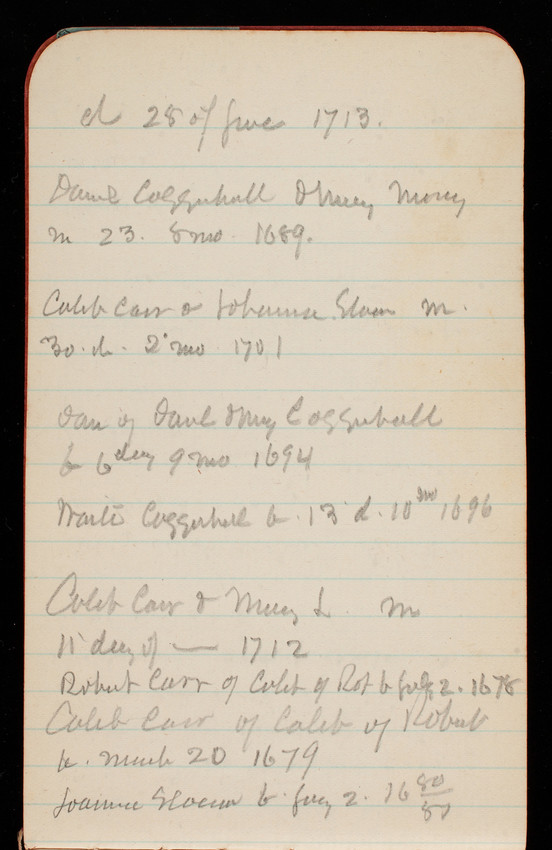 d 28 of June 1713.
Danl Coggeshall & Mary Mowry
m 23. 8 mo. 1689.
Caleb Carr & Johanna Slocum m.
30. d. 2 mo 1701
Dau of Danl & Mary Coggeshall
b 6 day 9 mo 1694
Waite Coggeshall b. 13 d. 10 mo 1696
Caleb Carr & Mary m
11 day of — 1712
Robert Carr of Caleb of Rob b July 2. 1678
Caleb Carr of Caleb of Robert
b. March 20 1679
Joanna Slocum b. 2. 16 80/81